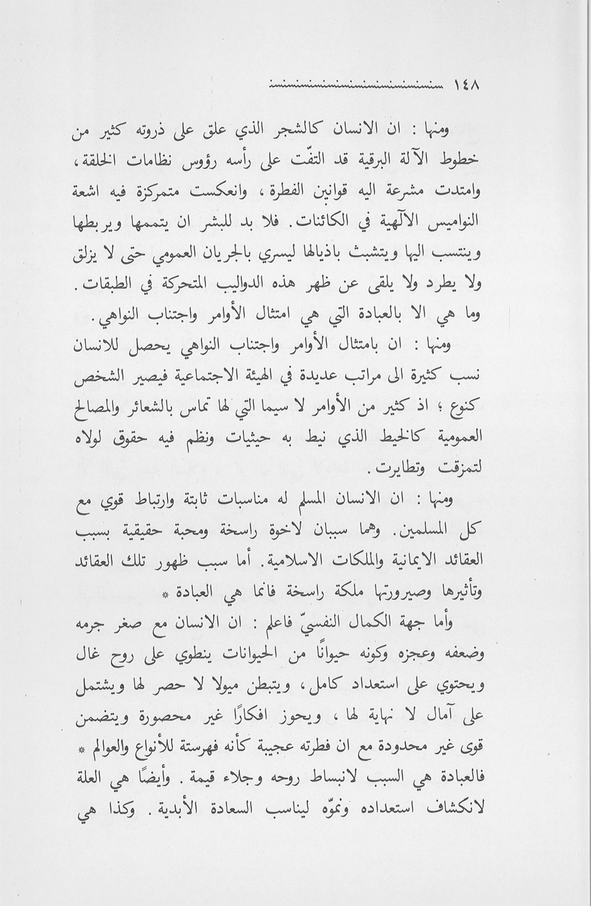 ١٤٨
ومنها : ان الانسان كالشجر الذي علق على ذروته كثير من
خطوط الآلة البرقية قد التفّت على رأسه رؤوس نظامات الخلقة ،
وامتدت مشرعة اليه قوانين الفطرة ، وانعكست متمركزة فيه اشعة
النواميس الآلهية في الكائنات . فلا بد للبشر ان يتممها ويربطها
وينتسب اليها ويتشبث باذيالها ليسري بالجريان العمومي حتى لا يزلق
ولا يطرد ولا يلقى عن ظهر هذه الدواليب المتحركة في الطبقات .
وما هي الا بالعبادة التي هي امتثال الأوامر واجتناب النواهي .
ومنها : ان بامتثال الأوامر واجتناب النواهي يحصل للانسان
نسب كثيرة الى مراتب عديدة في الهيئة الاجتماعية فيصير الشخص
كنوع ؛ اذ كثير من الأوامر لا سيما التي لها تماس بالشعائر والمصالح
العمومية كالخيط الذي نيط به حيثيات ونظم فيه حقوق لولاه
لتمزقت وتطايرت .
ومنها : ان الانسان المسلم له مناسبات ثابتة وارتباط قوي مع
كل المسلمين . وهما سببان لاخوة راسخة ومحبة حقيقية بسبب
العقائد الايمانية والملكات الاسلامية . أما سبب ظهور تلك العقائد
وتأثيرها وصيرورتها ملكة راسخة فانما هي العبادة *
وأما جهة الكمال النفسيّ فاعلم : ان الانسان مع صغر جرمه
وضعفه وعجزه وكونه حيوانًا من الحيوانات ينطوي على روح غال
ويحتوي على استعداد كامل ، ويتبطن ميولا لا حصر لها ويشتمل
على آمال لا نهاية لها ، ويحوز افكارًا غير محصورة ويتضمن
قوى غير محدودة مع ان فطرته عجيبة كأنه فهرستة للأنواع والعوالم *
فالعبادة هي السبب لانبساط روحه وجلاء قيمة . وأيضًا هي العلة
لانكشاف استعداده ونموّه ليناسب السعادة الأبدية . وكذا هي